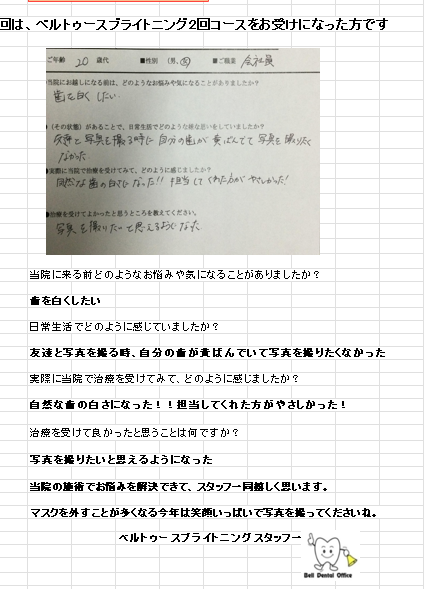 回は、ベルトゥースブライトニング2回コースをお受けになった方です
ご年齢 20 歳代 ■性別 (男、女) ■ご職業 会社員
当院にお越しになる前は、どのようなお悩みや気になることがありましたか?
歯を白くしたい
(その状態)があることで、日常生活でどのような嫌な思いをしていましたか?
友達と写真を撮る時に 自分の歯が黄ばんでて写真を撮りたく
なかった
●実際に当院で治療を受けてみて、どのように感じましたか?
自然な歯の白さになった!! 担当してくれた方がやさしかった!
●治療を受けてよかったと思うところを教えてください。
写真を撮りたいと思えるようになった
当院に来る前どのようなお悩みや気になることがありましたか?
歯を白くしたい
日常生活でどのように感じていましたか?
友達と写真を撮る時、自分の歯が黄ばんでいて写真を撮りたくなかった
実際に当院で治療を受けてみて、どのように感じましたか?
自然な歯の白さになった!!担当してくれた方がやさしかった!
治療を受けて良かったと思うことは何ですか?
写真を撮りたいと思えるようになった
当院の施術でお悩みを解決できて、スタッフ一同嬉しく思います。
マスクを外すことが多くなる今年は笑顔いっぱいで写真を撮ってくださいね。
ベルトゥースブライトニングスタッフ一
Bell Dental Office